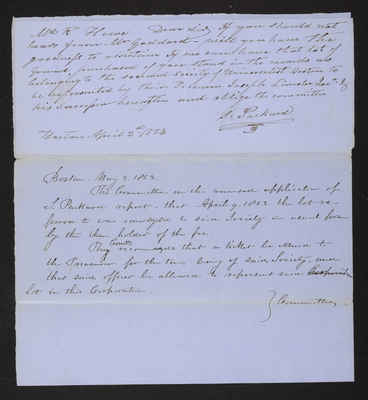 Mr. R. Howe Dear Sir, If you should not
hear from Mr Goddard will you have the
goodness to a of
Graves, purchased of you stand in the records as
belonging to the second Society of Universalist Boston to
be represented by their Treasurer Joseph Lincoln Esqr. by
his Successor hereafter and oblige the committee
S. Packard
Boston April 2nd
Boston May 2. 1852.
The Committee on the annexed application of
S. Packard report that April 9. 1852 the lot re-
ferred to was conveyed to said Society in usual form
by the then holder of the fee.
The Comtee recommend that a ticket be issued to
the Treasurer for the time being of said Society and
that said officer be allowed to represent said
lot in this Corporation.
} Committee